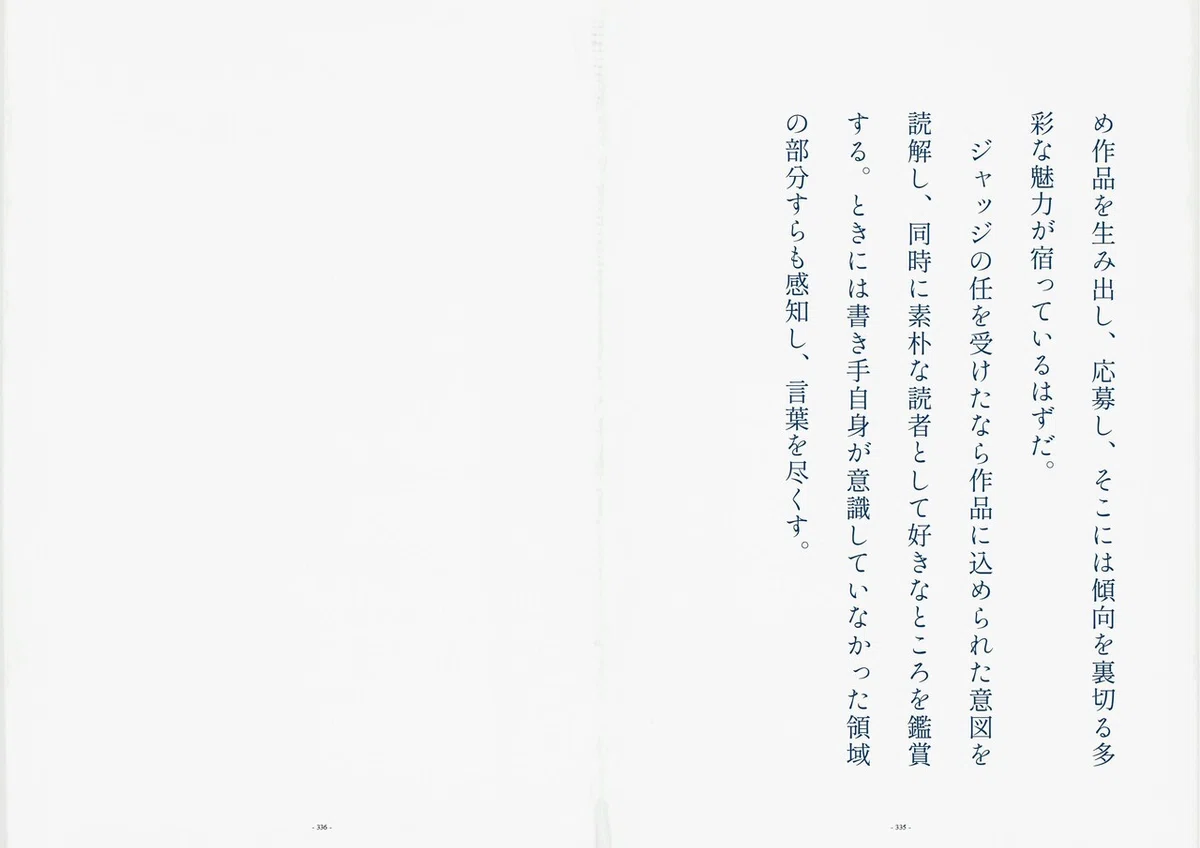 め作品を生み出し、応募し、そこには傾向を裏切る多
彩な魅力が宿っているはずだ。
ジャッジの任を受けたなら作品に込められた意図を
読解し、同時に素朴な読者として好きなところを鑑賞
する。ときには書き手自身が意識していなかった領域
の部分すらも感知し、言葉を尽くす。
- 335 -
- 336 -